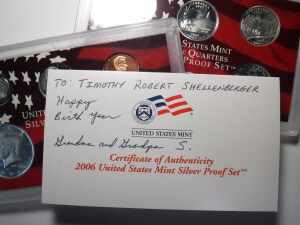 States Mint
Quarters
Proof Set™
To: Timothy Robert Shellenberger
Happy
Birth Year
UNITED STATES MINT
Grandma and Grandpa S.
Certificate of Authenticity
2006 United States Mint Silver Proof Set™